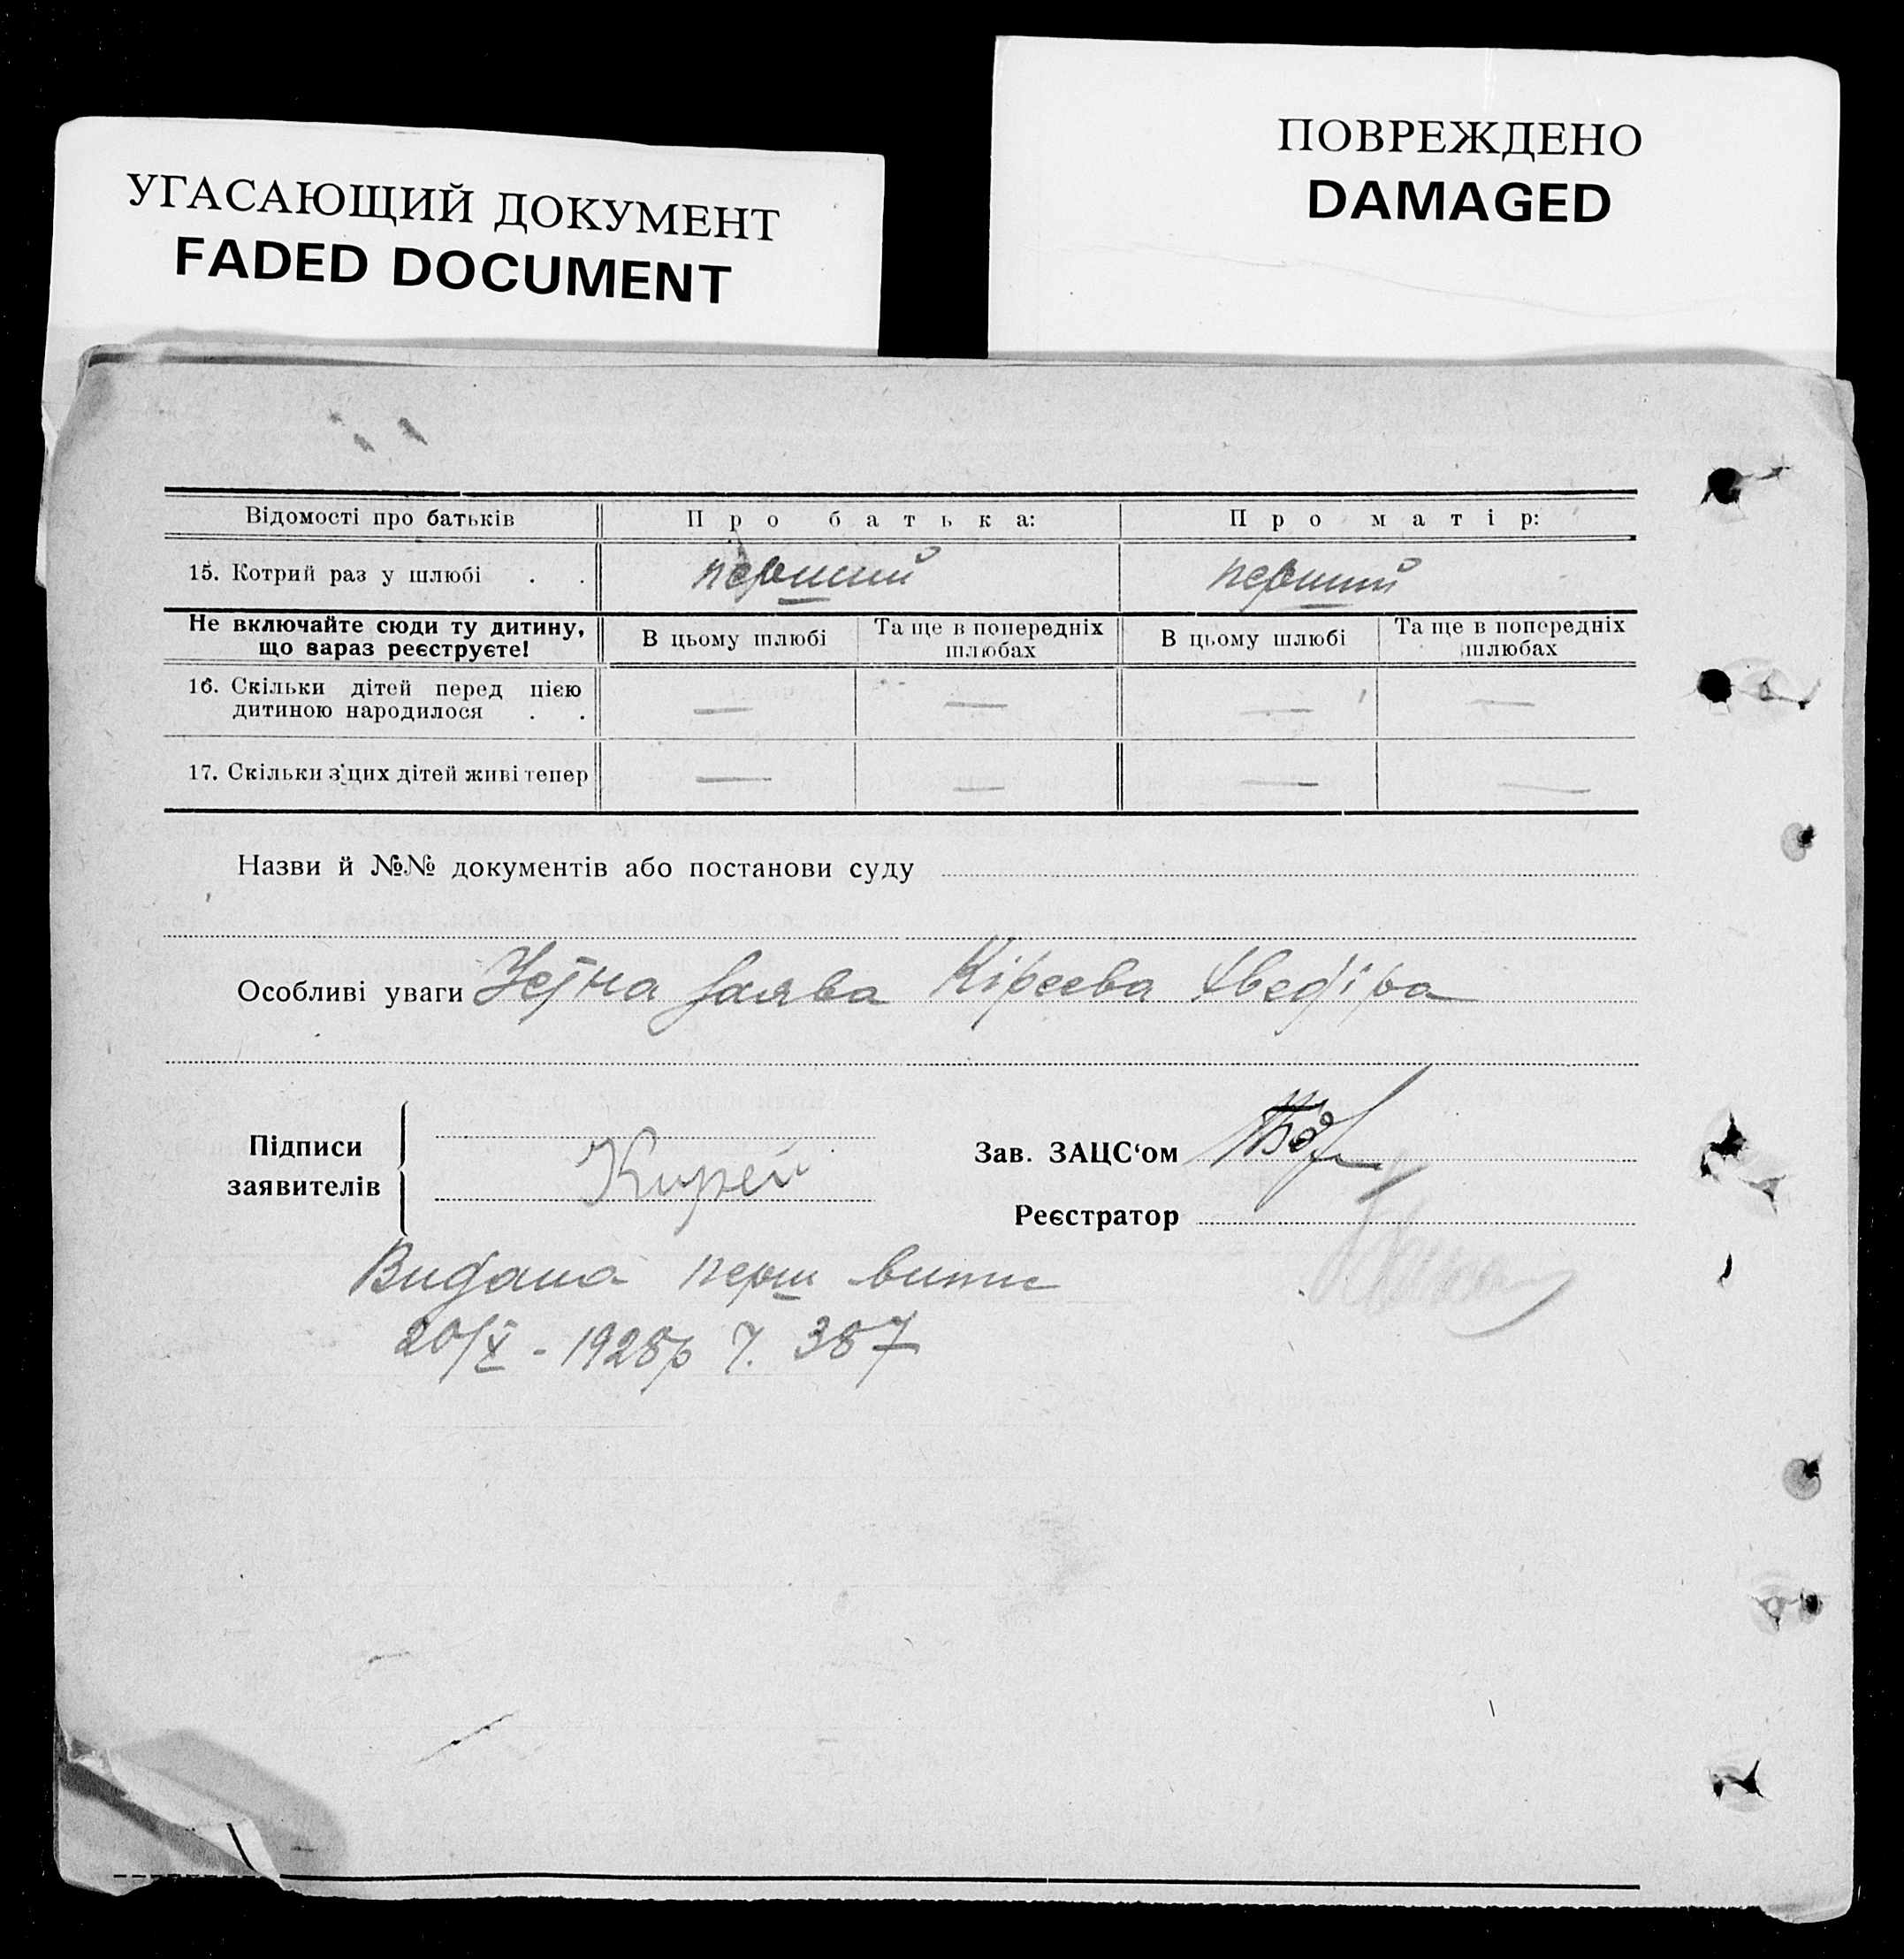 УГАСАЮЩИЙ ДОКУМЕНТ
FADED DOCUMENT
ПОВРЕЖДЕНО
DAMAGED
Відомості про батьків
Про батька:
Про матір:
15. Котрий раз у шлюбі . .
перший
перший
Не включайте сюди ту дитину,
що зараз реєструєте!
В цьому шлюбі
Та ще в попередніх
шлюбах
В цьому шлюбі
Та ще в попередніх
шлюбах
16. Скільки дітей перед цією
дитиною народилося . .
— — — —
17. Скільки з цих дітей живі тепер
— — — —
Назви й №№ документів або постанови суду
Особливі уваги Устна заява Кіреева Хведіра
Підписи
заявителів
Кирей
Зав. ЗАЦС‘ом
Реєстратор
Видана перш випис
20/X - 1928р Ч. 387